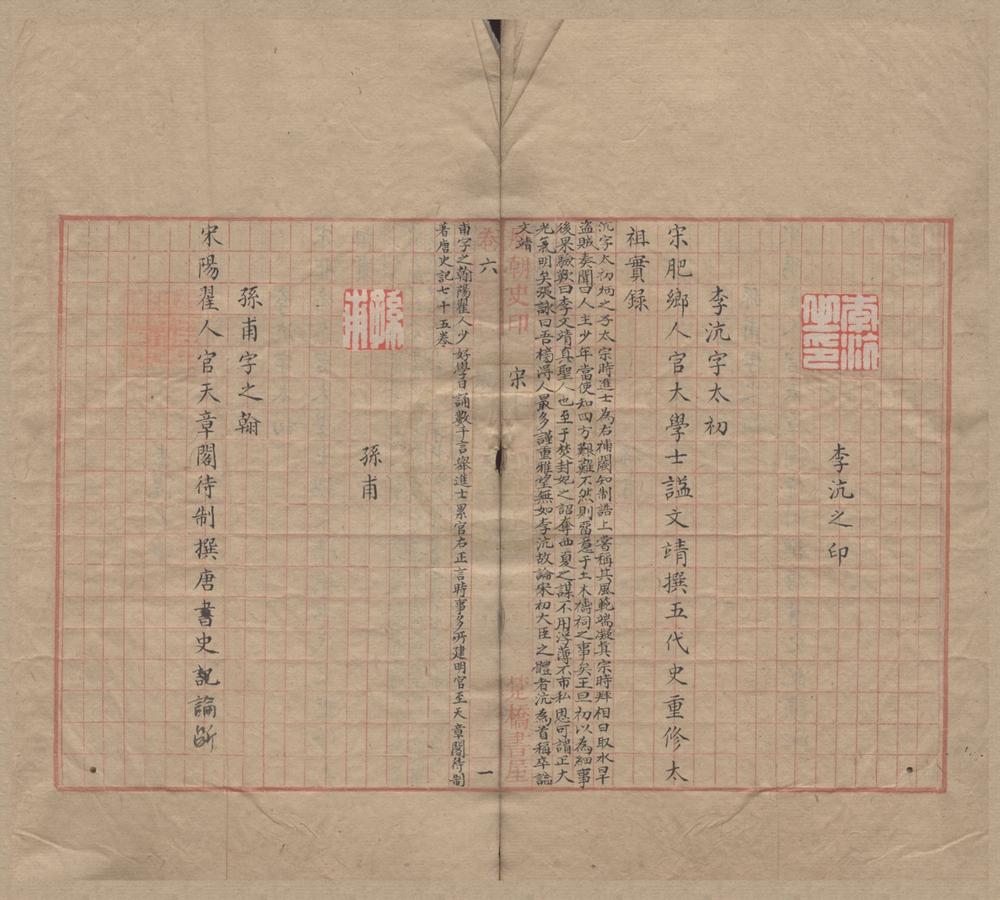 李沆之印
李沆之印
李沆字太初
宋肥鄉人官大學士諡文靖撰五代史重修太
祖實録
沆字太初炳之子太宗時進士為右補闕知制誥上嘗稱其風範端凝真宗時拜相日取水旱
盜賊奏聞曰人主少年當使知四方艱難不然則留意于土木禱祠之事矣王旦初以為細事
後果驗歎曰李文靖真聖人也至于焚封妃之詔奪西夏之謀不用浮薄不市私恩可謂正大
光明矣張詠曰吾榜得人最多謹重雅望無如李沆故論宋初大臣之體者沆為首稱卒諡
文靖
歷朝史印
宋
楚橋書屋
卷六
一
甫字之翰陽翟人少好學日誦數千言舉進士累官右正言時事多所建明官至天章閣待制
著唐史記七十五卷
孫甫
孫甫
孫甫字之翰
宋陽翟人官天章閣待制撰唐書史記論斷